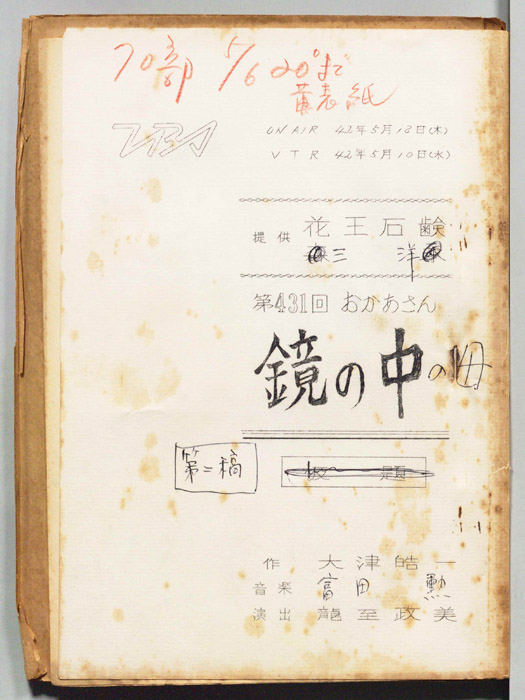 70部 5/6 20°まで
黄表紙
TBS
ON AIR 42年5月18日(木)
VTR 42年5月10日(水)
提供 花王石鹸
三洋
第431回 おかあさん
鏡の中の母
第二稿
仮題
作 大津皓一
音楽 富田勲
演出 龍至政美